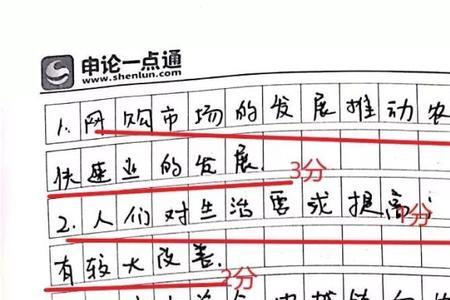 申论一点通
www.shenlun.com
1. 网购市场的发展推动农
快速业的发展.
3分
2. 人们对生治要求提高
1分
有较大改善.
2分